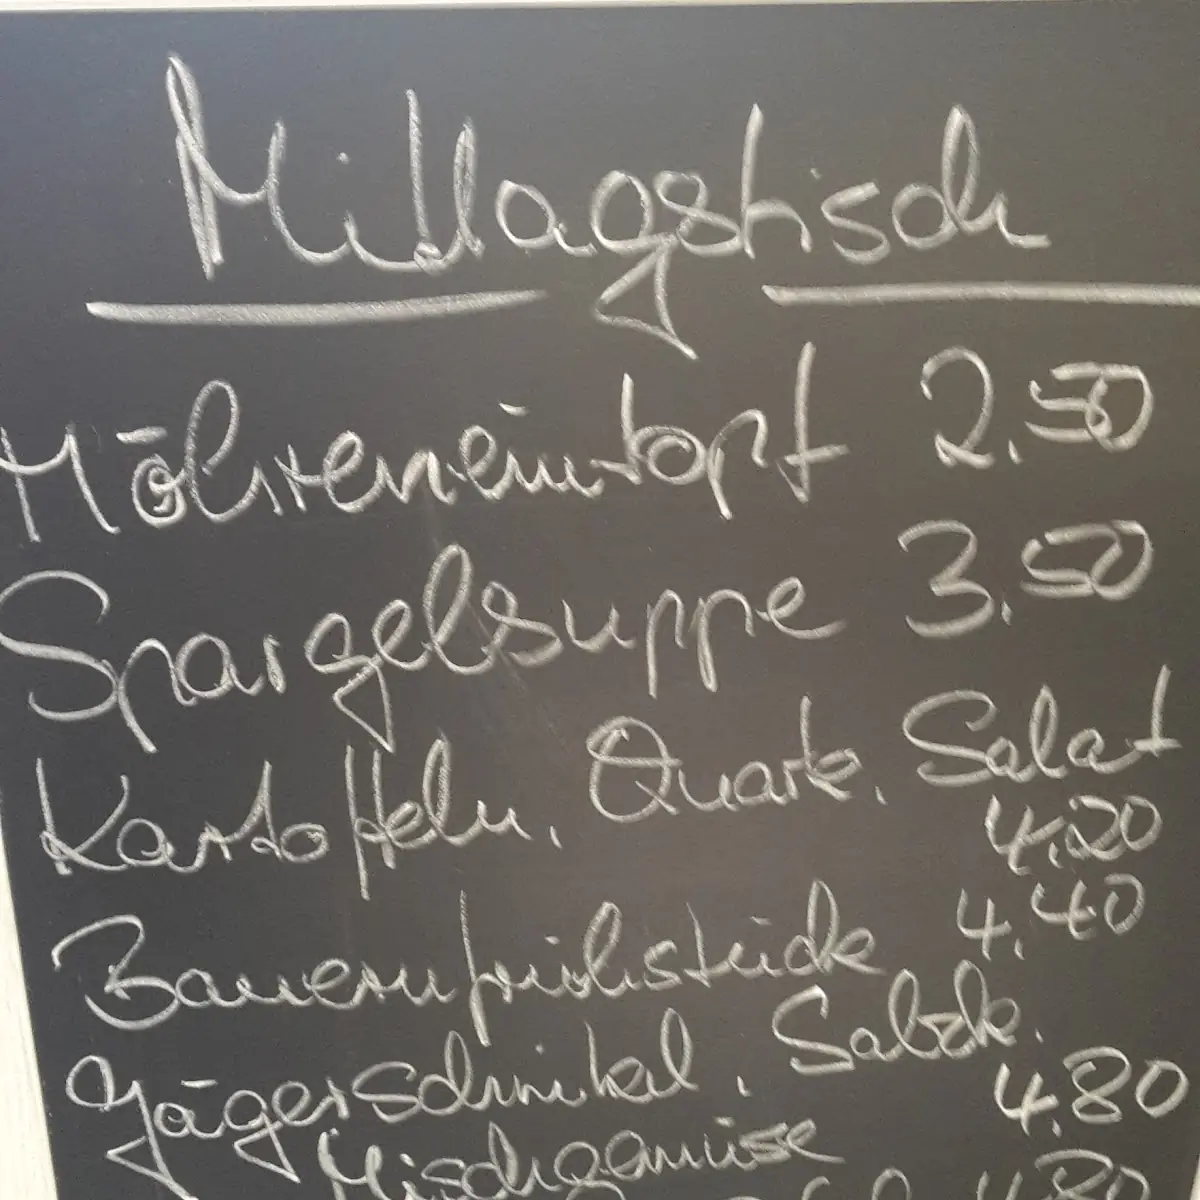 Mittagstisch
Möhreneintopf 2.50
Spargelsuppe 3.50
Kartoffeln, Quark, Salat
4.20
Bauernfrühstück 4.40
Jägerschnitzel, Salzk.
Mischgemüse 4.80
4.80